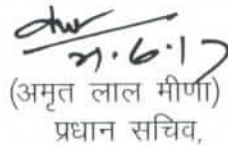 21.6.17
(अमृत लाल मीणा)
प्रधान सचिव,